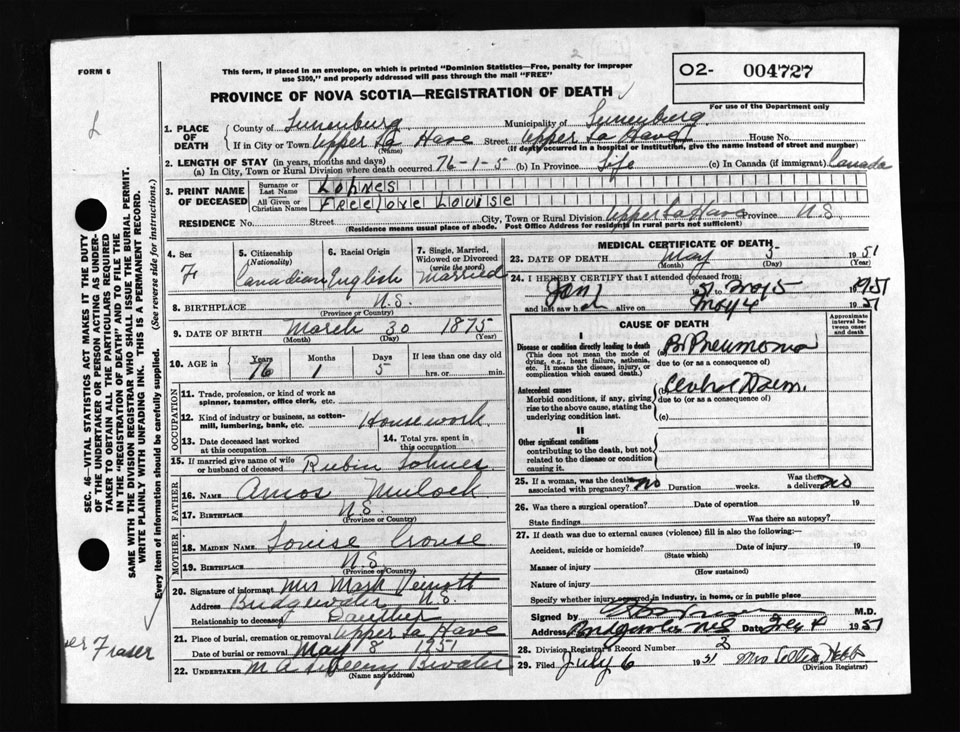 FORM 6
This form, if placed in an envelope, on which is printed "Dominion Statistics—Free, penalty for improper
use $300," and properly addressed will pass through the mail "FREE"
2
O2- 004727
For use of the Department only
PROVINCE OF NOVA SCOTIA—REGISTRATION OF DEATH
L
1. PLACE OF DEATH
County of Lunenburg Municipality of Lunenburg
If in City or Town Upper La Have Street Upper La Have House No.
(Name) (If death occurred in a hospital or institution, give the name instead of street and number)
2. LENGTH OF STAY (in years, months and days)
(a) In City, Town or Rural Division where death occurred 76-1-5 (b) In Province Life (c) In Canada (if immigrant) Canada
3. PRINT NAME OF DECEASED
Surname or Last Name Lohnes
All Given or Christian Names Freelove Louise
RESIDENCE No. Street City, Town or Rural Division Upper La Have Province N.S.
(Residence means usual place of abode. Post Office Address for residents in rural parts not sufficient)
4. Sex F
5. Citizenship (Nationality) Canadian
6. Racial Origin English
7. Single, Married, Widowed or Divorced (write the word) Married
8. BIRTHPLACE N.S.
(Province or Country)
9. DATE OF BIRTH March 30 1875
(Month) (Day) (Year)
10. AGE in Years 76 Months 1 Days 5 If less than one day old
hrs. or min.
OCCUPATION
11. Trade, profession, or kind of work as
spinner, teamster, office clerk, etc.
12. Kind of industry or business, as cotton-
mill, lumbering, bank, etc. Housework
13. Date deceased last worked
at this occupation
14. Total yrs. spent in
this occupation
15. If married give name of wife
or husband of deceased Rubin Lohnes
FATHER
16. NAME Amos Mulock
17. BIRTHPLACE N.S.
(Province or Country)
MOTHER
18. MAIDEN NAME Louise Crouse
19. BIRTHPLACE N.S.
(Province or Country)
20. Signature of informant Mrs Mark Veinott
Address Bridgewater N.S.
Relationship to deceased Daughter
21. Place of burial, cremation or removal Upper La Have
Date of burial or removal May 8 1951
22. UNDERTAKER M A Sweeny B'water
(Name and address)
MEDICAL CERTIFICATE OF DEATH
23. DATE OF DEATH May 5 1951
(Month) (Day) (Year)
24. I HEREBY CERTIFY that I attended deceased from:
Jan 1 51 to May 5 1951
and last saw h alive on May 4 1951
CAUSE OF DEATH
Approximate interval between onset and death
I
Disease or condition directly leading to death
(This does not mean the mode of dying, e.g., heart failure, asthenia, etc. It means the disease, injury, or complication which caused death.)
(a) Br Pneumonia
due to (or as a consequence of)
Antecedent causes
Morbid conditions, if any, giving rise to the above cause, stating the underlying condition last.
(b)
due to (or as a consequence of)
(c)
II
Other significant conditions
contributing to the death, but not related to the disease or condition causing it.
25. If a woman, was the death associated with pregnancy? no Duration weeks. Was there a delivery no
26. Was there a surgical operation? Date of operation 19
State findings Was there an autopsy?
27. If death was due to external causes (violence) fill in also the following:—
Accident, suicide or homicide? Date of injury 19
(State which)
Manner of injury
(How sustained)
Nature of injury
Specify whether injury occurred in industry, in home, or in public place
Signed by M.D.
Address Bridgewater N.S. Date 1951
28. Division Registrar's Record Number 3
29. Filed July 6 1951 Mrs
(Division Registrar)
SEC. 46—VITAL STATISTICS ACT MAKES IT THE DUTY
OF THE UNDERTAKER OR PERSON ACTING AS UNDER-
TAKER TO OBTAIN ALL THE PARTICULARS REQUIRED
IN THE "REGISTRATION OF DEATH" AND TO FILE THE
SAME WITH THE DIVISION REGISTRAR WHO SHALL ISSUE THE BURIAL PERMIT.
WRITE PLAINLY WITH UNFADING INK. THIS IS A PERMANENT RECORD.
Every item of information should be carefully supplied. (See reverse side for instructions.)
Fraser